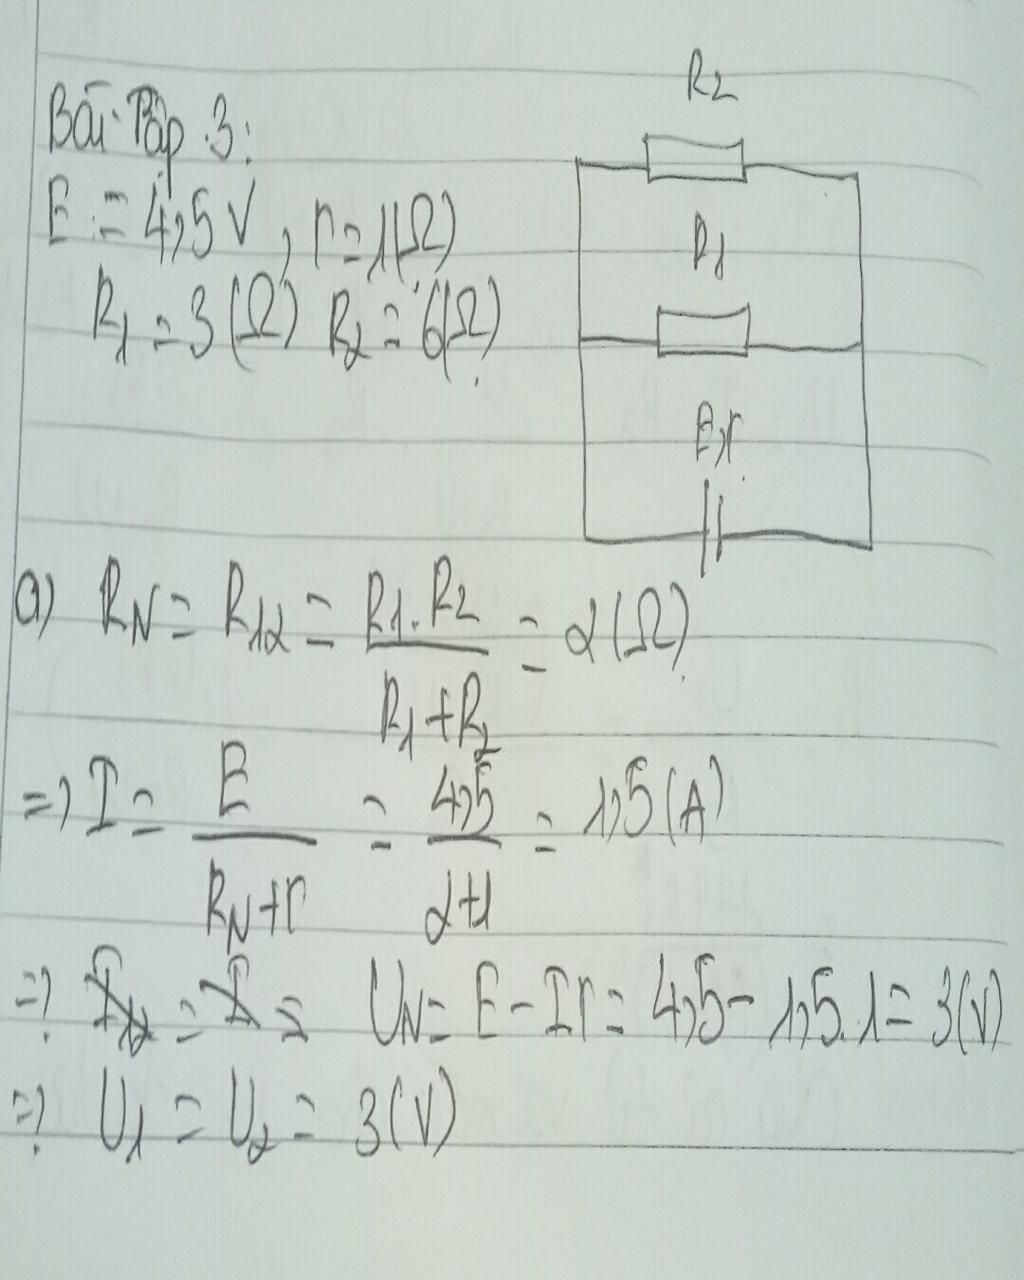 Bài Tập 3:
E = 4,5 V, r = 1(Ω)
R1 = 3 (Ω) R2 = 6(Ω)
R2
R1
E,r
a) RN = R12 = R1.R2 / R1+R2 = 2(Ω)
=> I = E / RN+r = 4,5 / 2+1 = 1,5(A)
=> I12 = I = UN = E - Ir = 4,5 - 1,5.1 = 3(V)
=> U1 = U2 = 3(V)